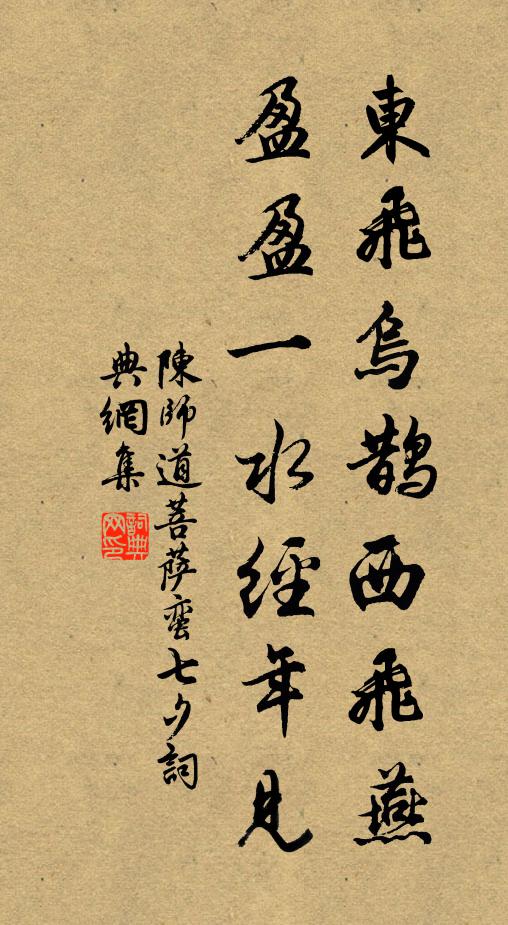 東飛烏鵲西飛燕
盈盈一水經年見
陳師道菩薩蠻七夕詞
典網集
詞典網印